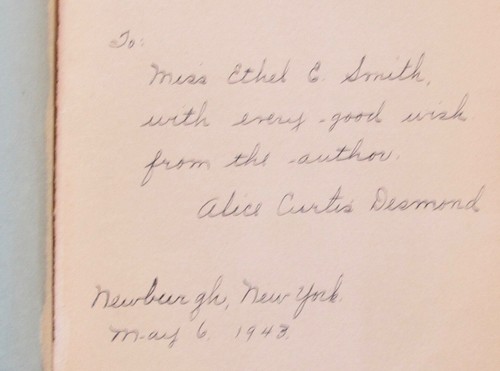 To:
Miss Ethel E. Smith,
with every good wish
from the author.
Alice Curtis Desmond
Newburgh, New York.
May 6, 1943.